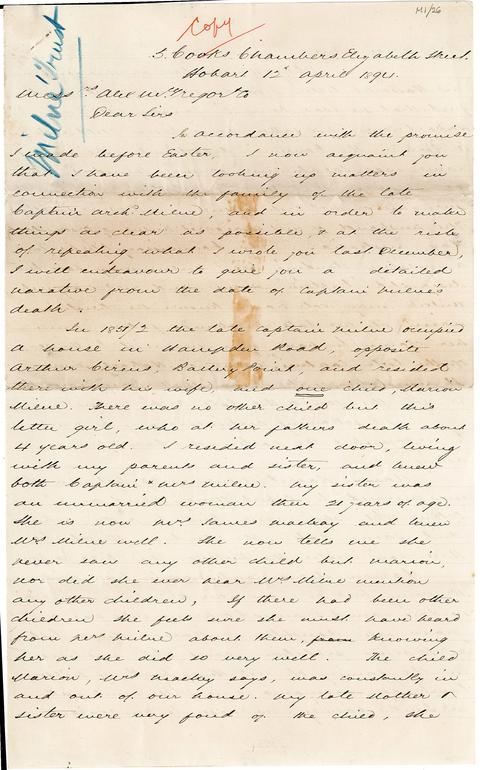 M1/26
Copy
Milne Trust
3 Cooks Chambers Elizabeth Street
Hobart 12th April 1894.
Mess.rs Alex McGregor & Co
Dear Sirs
In accordance with the promise
I made before Easter, I now acquaint you
that I have been looking up matters in
connection with the family of the late
Captain Archd Milne, and in order to make
things as clear as possible, & at the risk
of repeating what I wrote you last December,
I will endeavour to give you a detailed
narative from the date of Captain Milne's
death.
In the late Captain Milne occupied
a house in Hampden Road, opposite
Arthur Circus, Battery Point, and resided
there with his wife, and one child, Marion
Milne. There was no other child but this
little girl, who at her fathers death about
4 years old. I resided next door, living
with my parents and sister, and knew
both Captain & Mrs Milne. My sister was
an unmarried woman then 21 years of age.
She is now Mrs James Mackay and knew
Mrs Milne well. She now tells me she
never saw any other child but Marion,
nor did she ever hear Mrs Milne mention
any other children, If there had been other
children she feels sure she must have heard
from Mrs Milne about them, from knowing
her as she did so very well. The child
Marion, Mrs Mackay says, was constantly in
and out of our house. My late Mother &
sister were very fond of the child, she